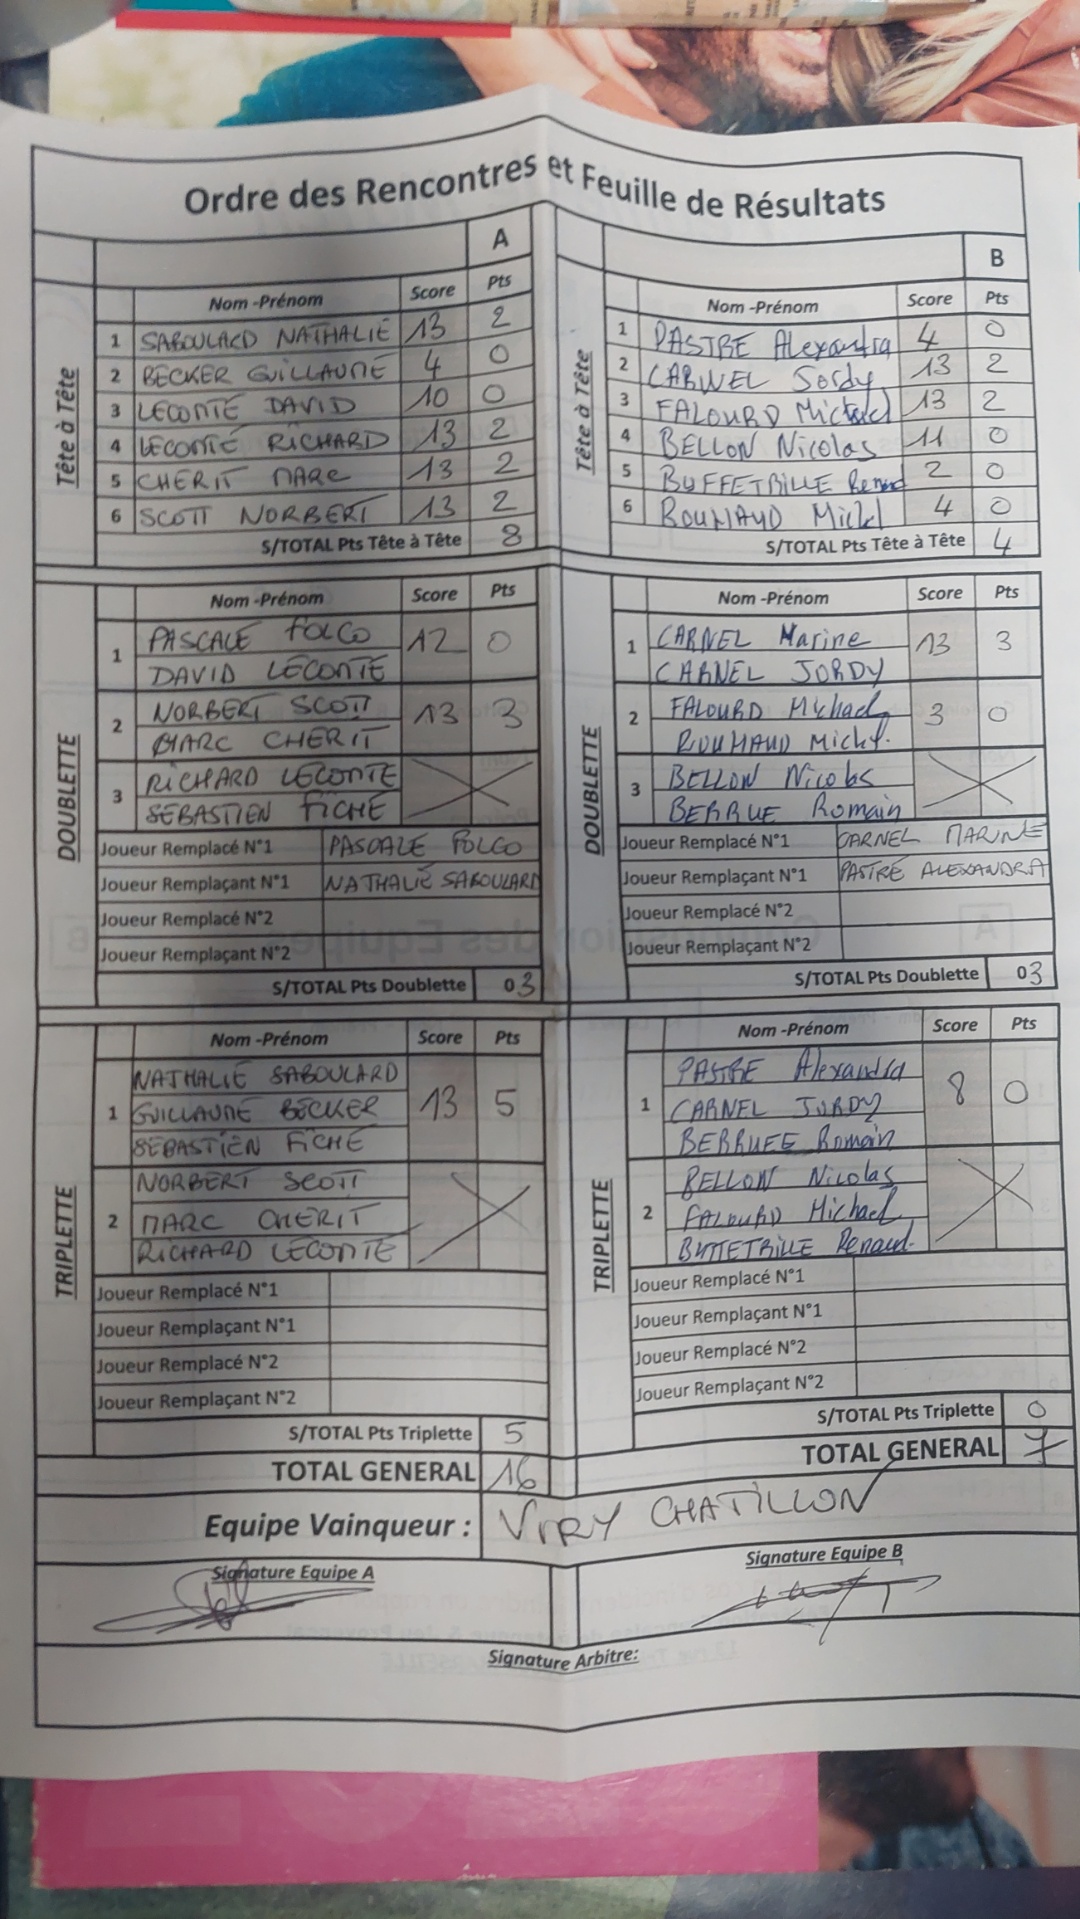 Ordre des Rencontres et Feuille de Résultats
A
Tête à Tête
Nom -Prénom Score Pts
1 SABOULARD NATHALIE 13 2
2 BECKER GUILLAUME 4 0
3 LECONTE DAVID 10 0
4 LECONTE RICHARD 13 2
5 CHERIT MARC 13 2
6 SCOTT NORBERT 13 2
S/TOTAL Pts Tête à Tête 8
DOUBLETTE
Nom -Prénom Score Pts
1 PASCALE FOLCO 12 0
DAVID LECONTE
2 NORBERT SCOTT 13 3
MARC CHERIT
3 RICHARD LECONTE
SEBASTIEN FICHE
Joueur Remplacé N°1 PASCALE FOLCO
Joueur Remplaçant N°1 NATHALIE SABOULARD
Joueur Remplacé N°2
Joueur Remplaçant N°2
S/TOTAL Pts Doublette 03
TRIPLETTE
Nom -Prénom Score Pts
NATHALIE SABOULARD
1 GUILLAUME BECKER 13 5
SEBASTIEN FICHE
NORBERT SCOTT
2 MARC CHERIT
RICHARD LECONTE
Joueur Remplacé N°1
Joueur Remplaçant N°1
Joueur Remplacé N°2
Joueur Remplaçant N°2
S/TOTAL Pts Triplette 5
TOTAL GENERAL 16
B
Tête à Tête
Nom -Prénom Score Pts
1 PASTRE Alexandra 4 0
2 CARNEL Jordy 13 2
3 FALOURD Michael 13 2
4 BELLON Nicolas 11 0
5 BUFFETRILLE Renaud 2 0
6 ROUMAUD Mickl 4 0
S/TOTAL Pts Tête à Tête 4
DOUBLETTE
Nom -Prénom Score Pts
1 CARNEL Marine 13 3
CARNEL JORDY
2 FALOURD Michael 3 0
ROUMAUD Mickl.
3 BELLON Nicolas
BERRUE Romain
Joueur Remplacé N°1 CARNEL MARINE
Joueur Remplaçant N°1 PASTRE ALEXANDRA
Joueur Remplacé N°2
Joueur Remplaçant N°2
S/TOTAL Pts Doublette 03
TRIPLETTE
Nom -Prénom Score Pts
PASTRE Alexandra
1 CARNEL JORDY 8 0
BERRUEE Romain
BELLON Nicolas
2 FALOURD Michael
BUFFETRILLE Renaud.
Joueur Remplacé N°1
Joueur Remplaçant N°1
Joueur Remplacé N°2
Joueur Remplaçant N°2
S/TOTAL Pts Triplette 0
TOTAL GENERAL 7
Equipe Vainqueur : VIRY CHATILLON
Signature Equipe A
Signature Equipe B
Signature Arbitre: